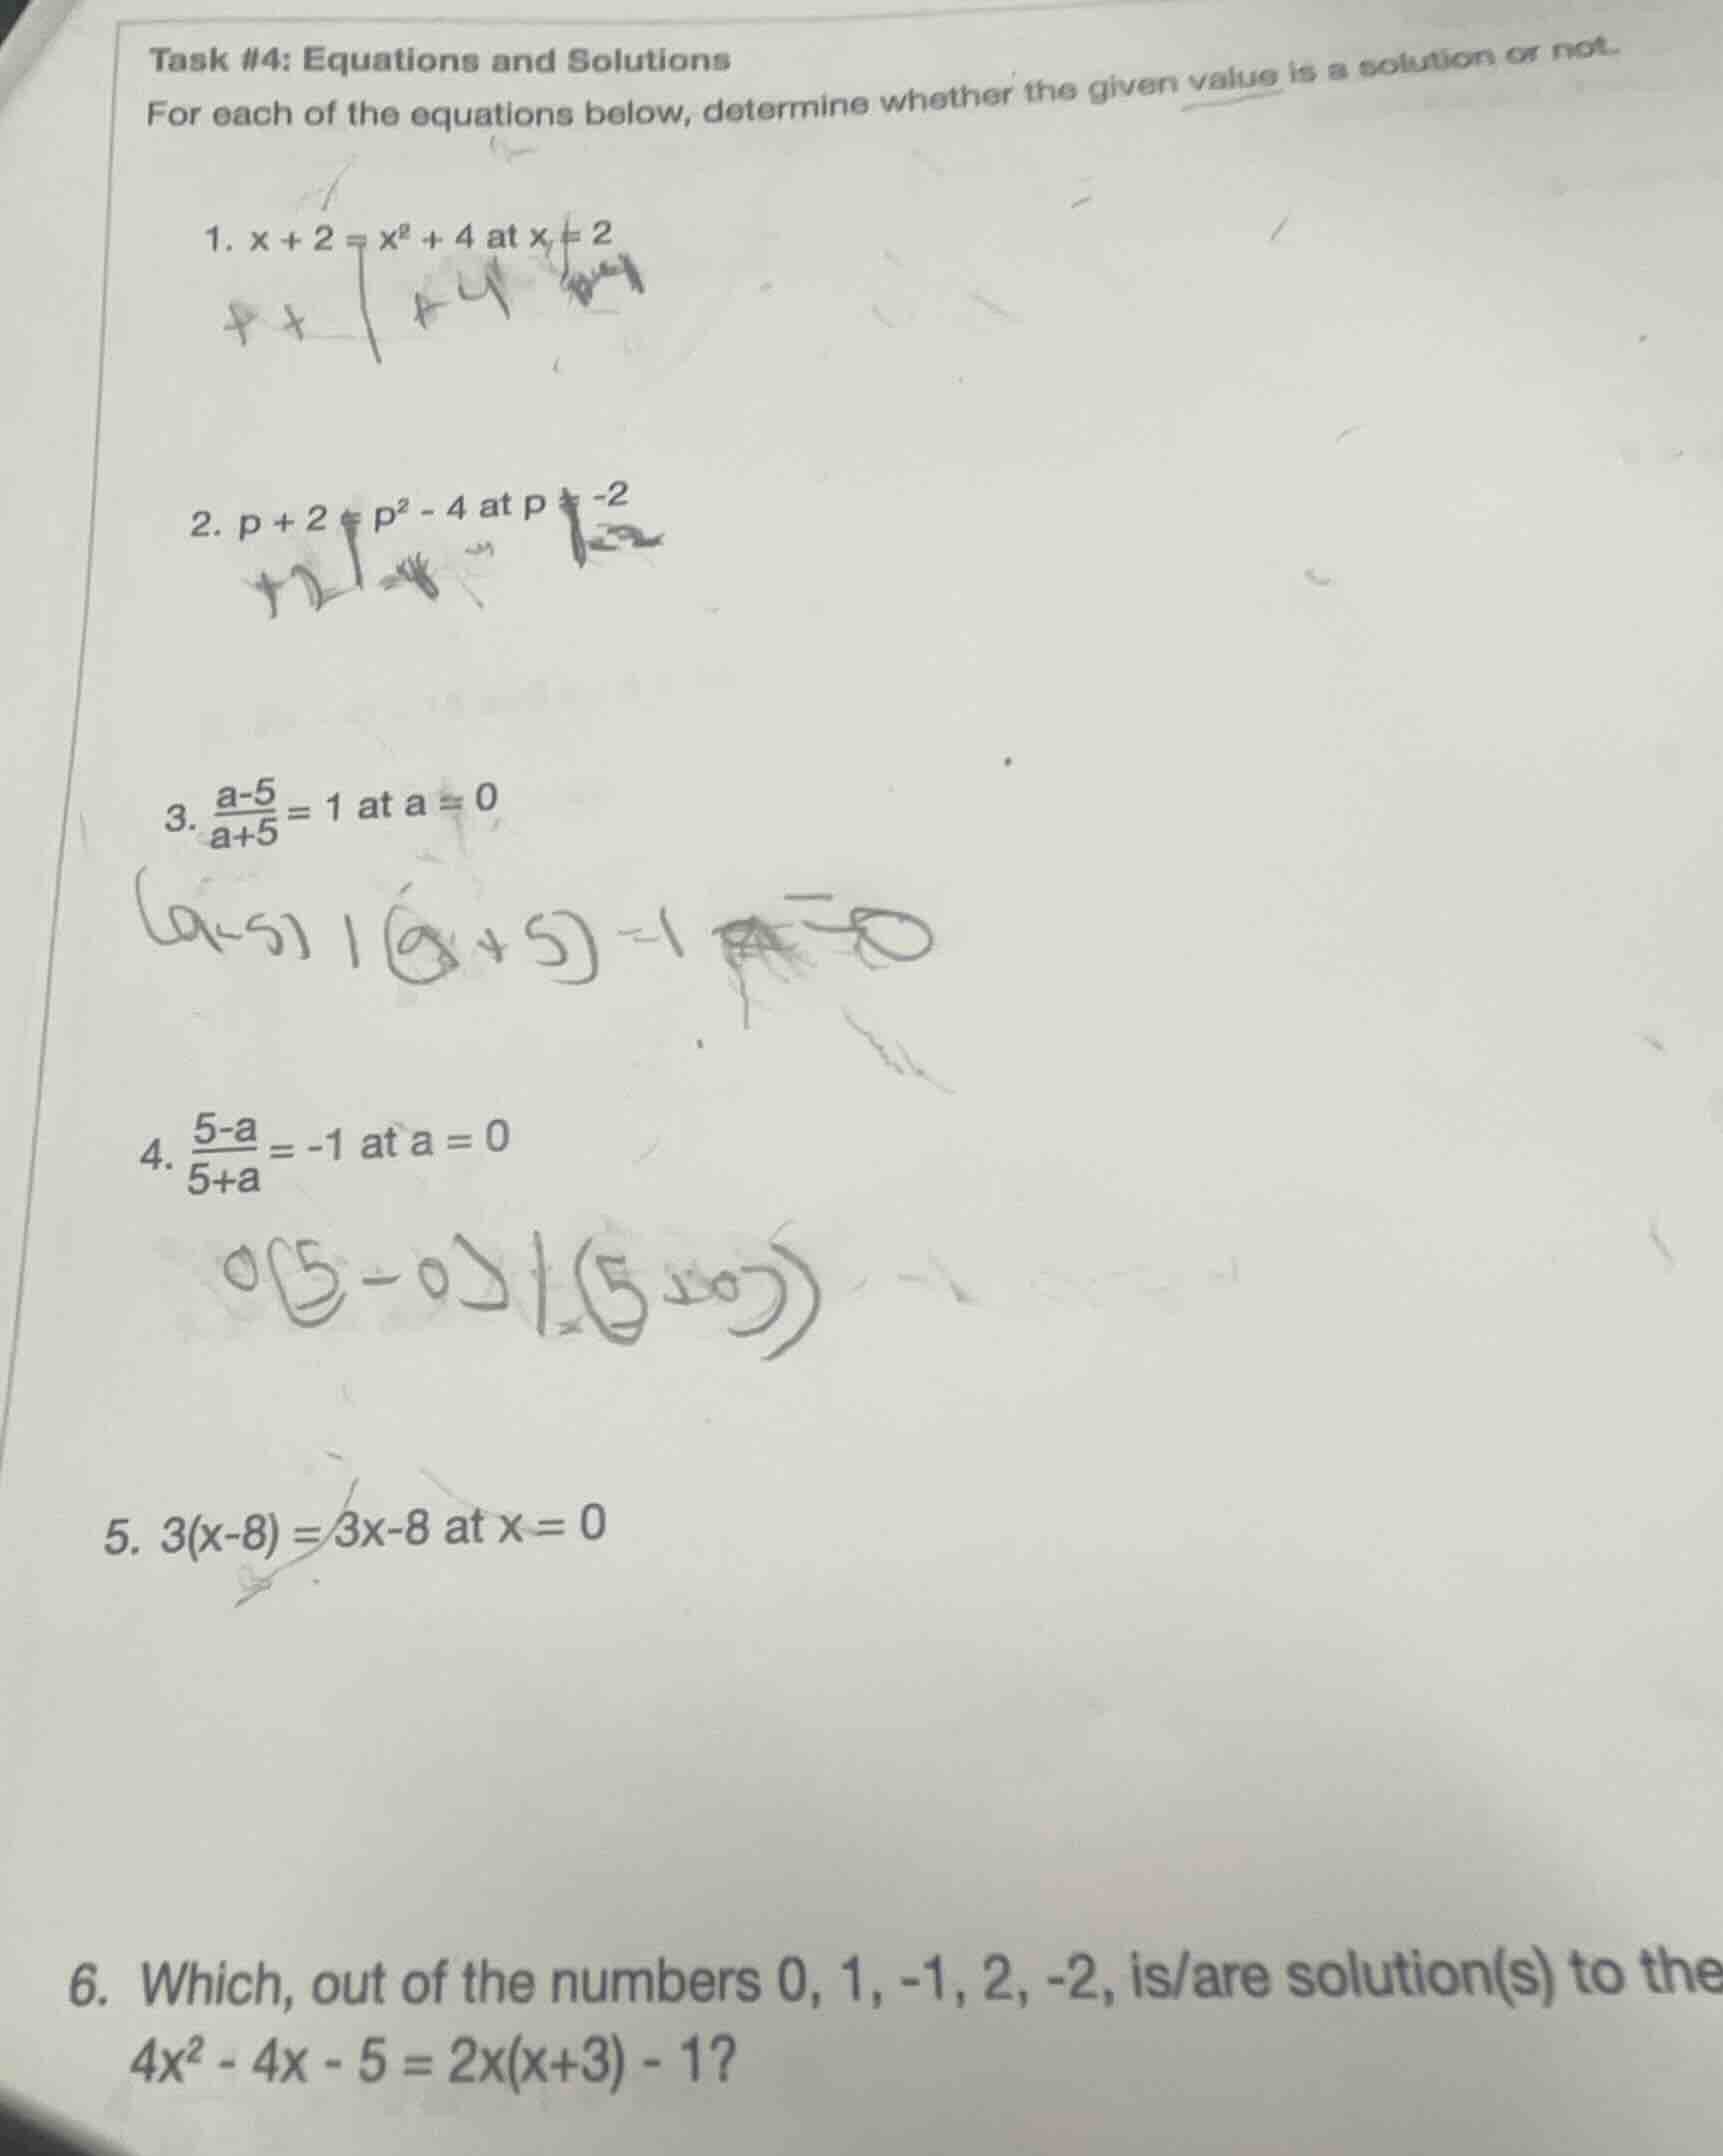 Task #4: Equations and Solutions
For each of the equations below, determine whether the given value is a solution or not.
1. x + 2 = x² + 4 at x = 2
+ + | + 4
2. p + 2 = p² - 4 at p = -2
+2 | -4 -2
3. a-5/a+5 = 1 at a = 0
(a-5) | (a+5) = 1 = 0
4. 5-a/5+a = -1 at a = 0
0(5-0) | (5+0)) -1
5. 3(x-8) = 3x-8 at x = 0
6. Which, out of the numbers 0, 1, -1, 2, -2, is/are solution(s) to the
4x² - 4x - 5 = 2x(x+3) - 1?